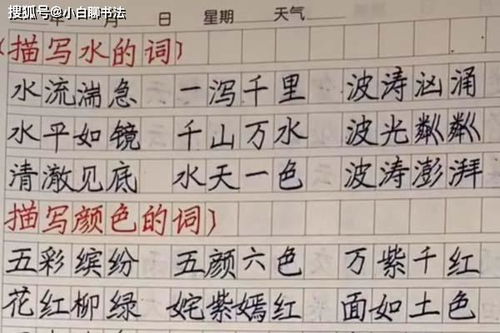 搜狐号@小白聊书法
年 月 日 星期 天气
(描写水的词)
水流湍急 一泻千里 波涛汹涌
水平如镜 千山万水 波光粼粼
清澈见底 水天一色 波涛澎湃
描写颜色的词)
五彩缤纷 五颜六色 万紫千红
花红柳绿 姹紫嫣红 面如土色